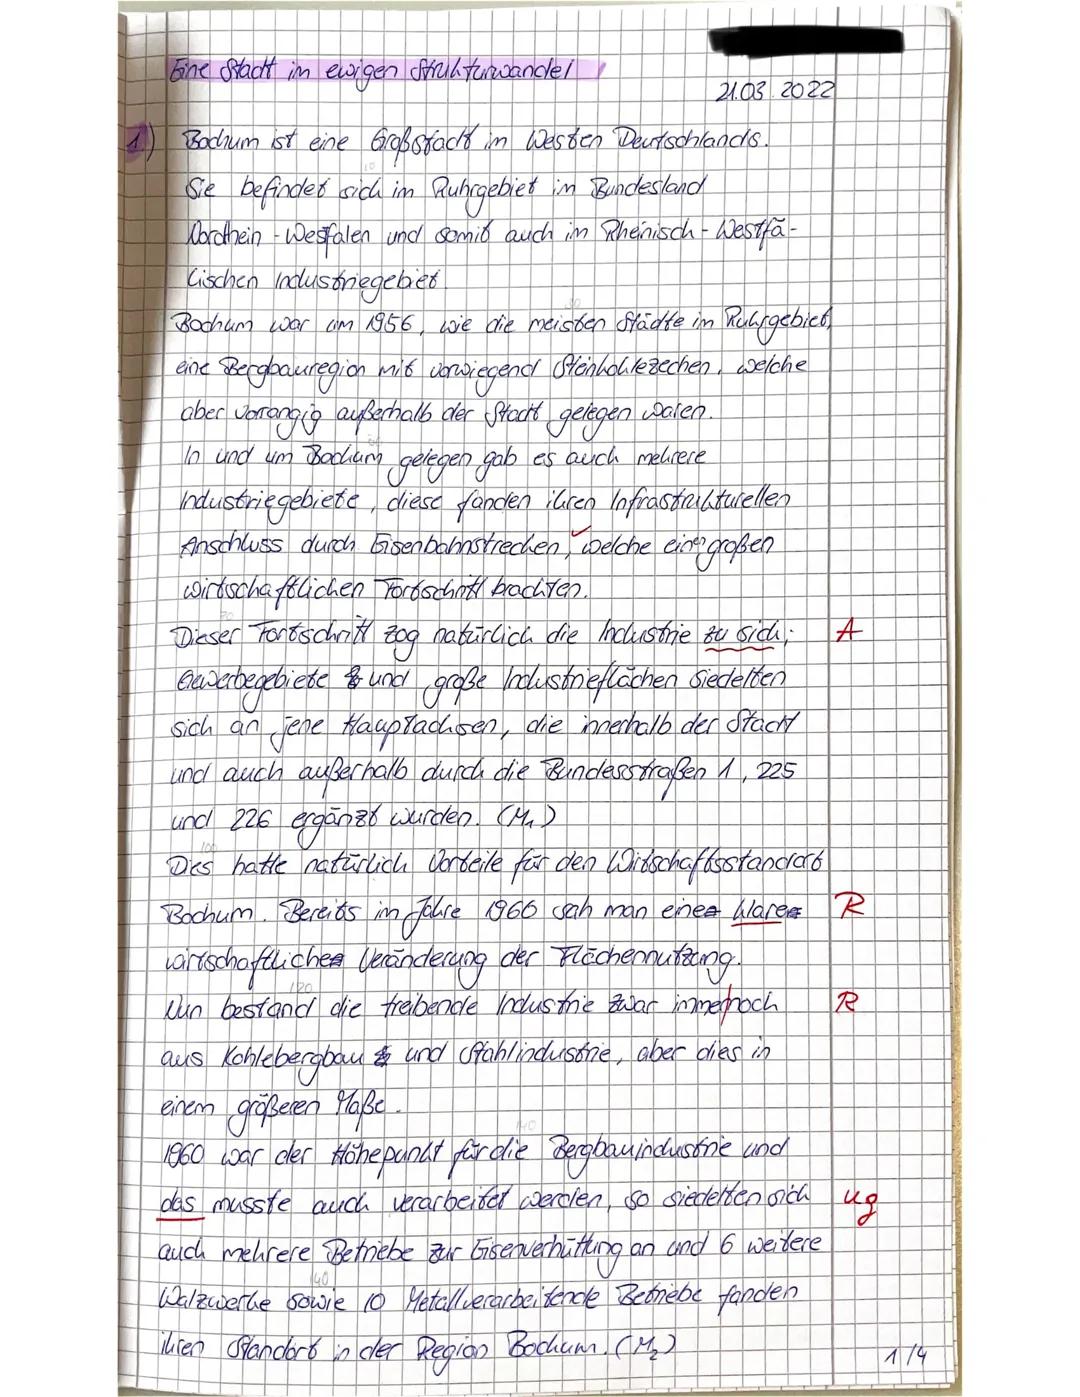 Eine Stadt im ewigen Strukturwandel
21.03.2022
1) Bochum ist eine Großstadt im Westen Deutschlands.
10
Sie befindet sich im Ruhrgebiet im Bundesland
Nordrhein-Westfalen und somit auch im Rheinisch-Westfä-
lischen Industriegebiet.
Bochum war um 1956, wie die meisten Städte im Ruhrgebiet,
eine Bergbauregion mit vorwiegend Steinkohlezechen, welche
aber vorrangig außerhalb der Stadt gelegen waren.
In und um Bochum gelegen gab es auch mehrere
Industriegebiete, diese fanden ihren Infrastrukturellen
Anschluss durch Eisenbahnstrecken, welche einen großen
wirtschaftlichen Fortschritt brachten.
Dieser Fortschritt zog natürlich die Industrie zu sich; A
Gewerbegebiete und große Industrieflächen siedelten
sich an jene Hauptachsen, die innerhalb der Stadt
und auch außerhalb durch die Bundesstraßen 1, 225
und 226 ergänzt wurden. (M1)
100
Dies hatte natürlich Vorteile für den Wirtschaftsstandort
Bochum. Bereits im Jahre 1966 sah man eine klare R
wirtschaftliche Veränderung der Flächennutzung.
120
Nun bestand die treibende Industrie zwar immernoch R
aus Kohlebergbau und Stahlindustrie, aber dies in
einem größeren Maße.
140
1960 war der Höhepunkt für die Bergbauindustrie und
das musste auch verarbeitet werden, so siedelten sich ug
auch mehrere Betriebe zur Eisenverhüttung an und 6 weitere
Walzwerke sowie 10 Metallverarbeitende Betriebe fanden
ihren Standort in der Region Bochum. (M2)
1/4